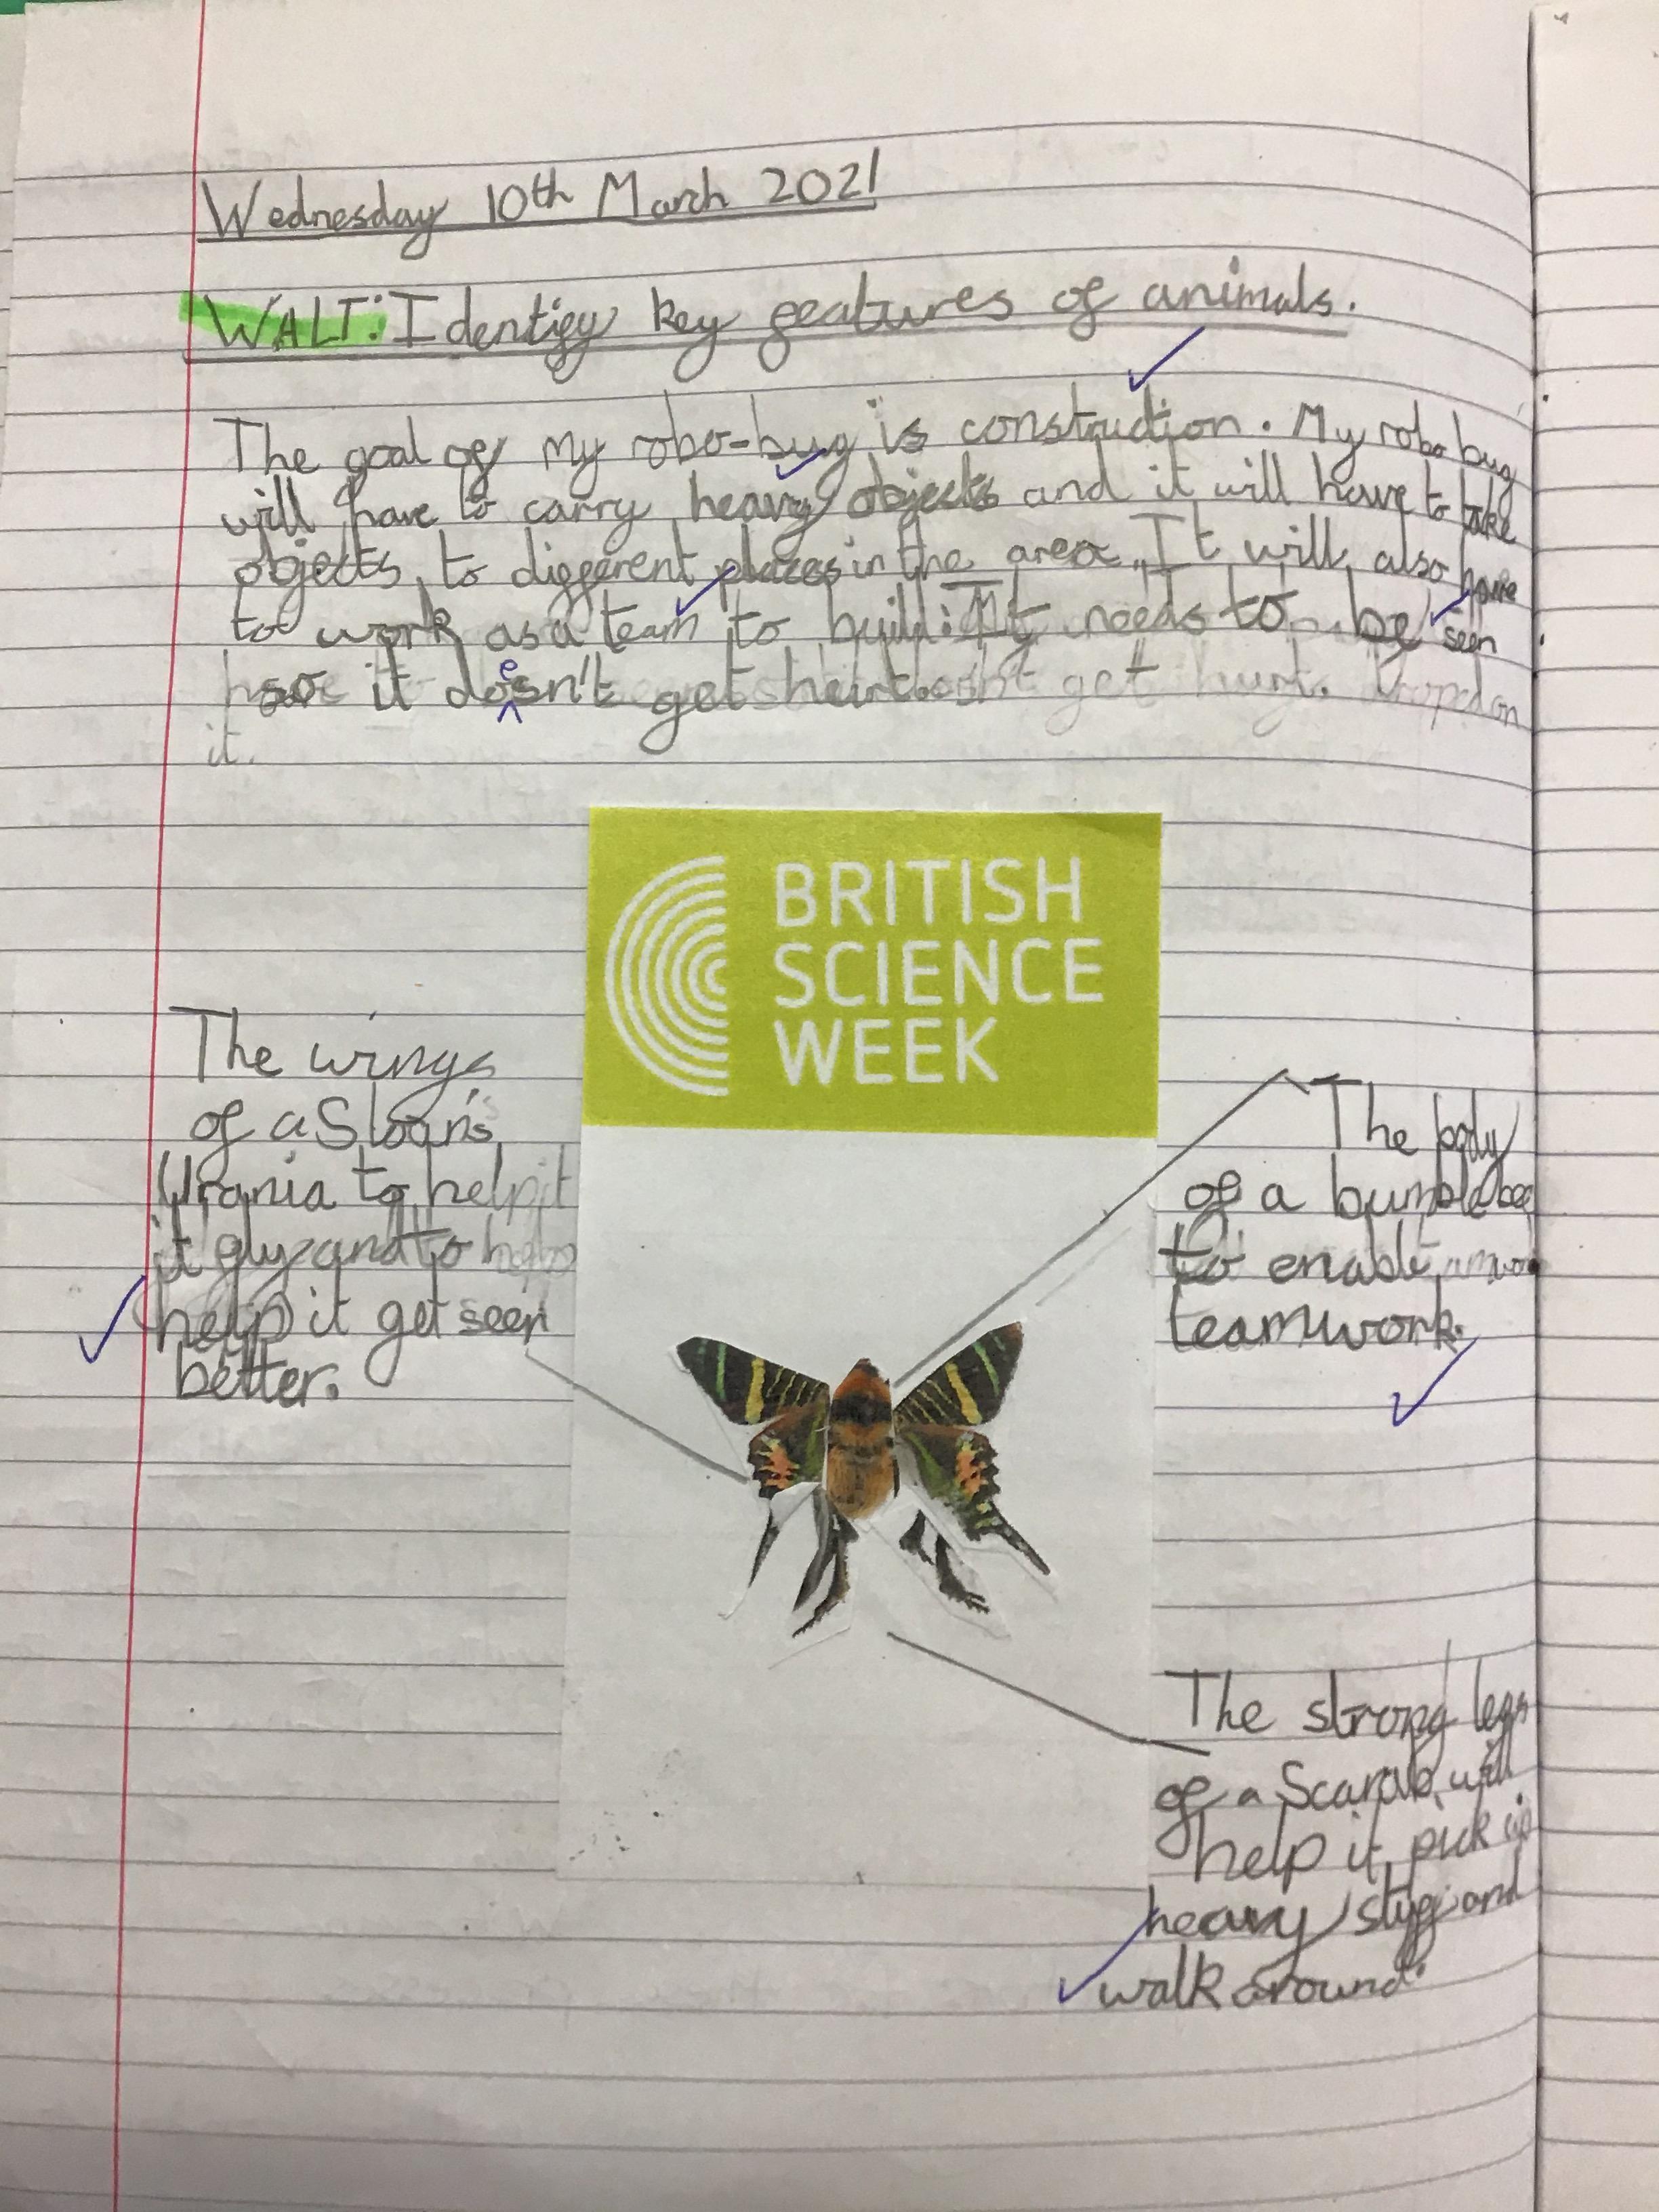 Wednesday 10th March 2021
WALT: Identify key features of animals.
The goal of my robo-bug is construction. My robo bug
will have to carry heavy objects and it will have to take
objects to different places in the area. It will also have
to work as a team to build. It needs to be seen
so it doesn't get heirt. get hurt. droped on
it.
BRITISH
SCIENCE
WEEK
The wings
of a Sloan's
Urania to help it
it fly and to help
help it get seen
better.
The body
of a bumble bee
to enable
teamwork.
The strong legs
of a Scarab will
help it pick up
heavy stuff and
walk around.